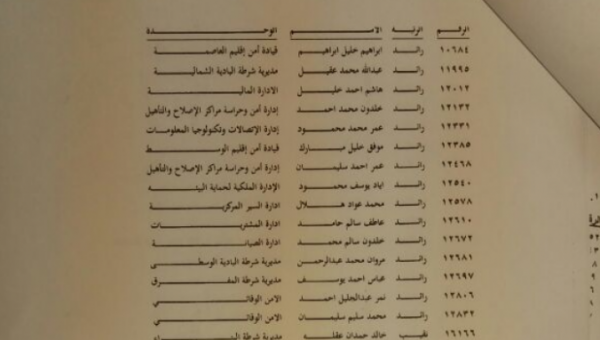 الرقم الرتبة الاسم الوحدة
١٠٦٨٤ رائد ابراهيم خليل ابراهيم قيادة أمن إقليم العاصمة
١١٩٩٥ رائد عبدالله محمد عقيل مديرية شرطة البادية الشمالية
١٢٠١٢ رائد هاشم احمد خليل الادارة المالية
١٢١٣٢ رائد خلدون محمد احمد إدارة أمن وحراسة مراكز الإصلاح والتأهيل
١٢٣٣١ رائد عمر محمد محمود إدارة الإتصالات وتكنولوجيا المعلومات
١٢٣٨٥ رائد موفق خليل مبارك قيادة أمن إقليم الوسط
١٢٤٦٨ رائد عمر احمد سليمان إدارة أمن وحراسة مراكز الإصلاح والتأهيل
١٢٥٤٠ رائد اياد يوسف محمود الإدارة الملكية لحماية البيئة
١٢٥٧٨ رائد محمد عواد هلال ادارة السير المركزية
١٢٦١٠ رائد عاطف سالم حامد ادارة المشتريات
١٢٦٧٢ رائد خلدون سالم محمد ادارة الصيانة
١٢٦٨١ رائد مروان محمد عبدالرحمن مديرية شرطة البادية الوسطى
١٢٦٩٧ رائد عباس احمد يوسف مديرية شرطة المفرق
١٢٨٠٦ رائد نمر عبدالجليل احمد الامن الوقائي
١٢٨٣٢ رائد محمد سليم سليمان الامن الوقائي
١٦١٦٦ نقيب خالد حمدان عقله مديرية شرطة